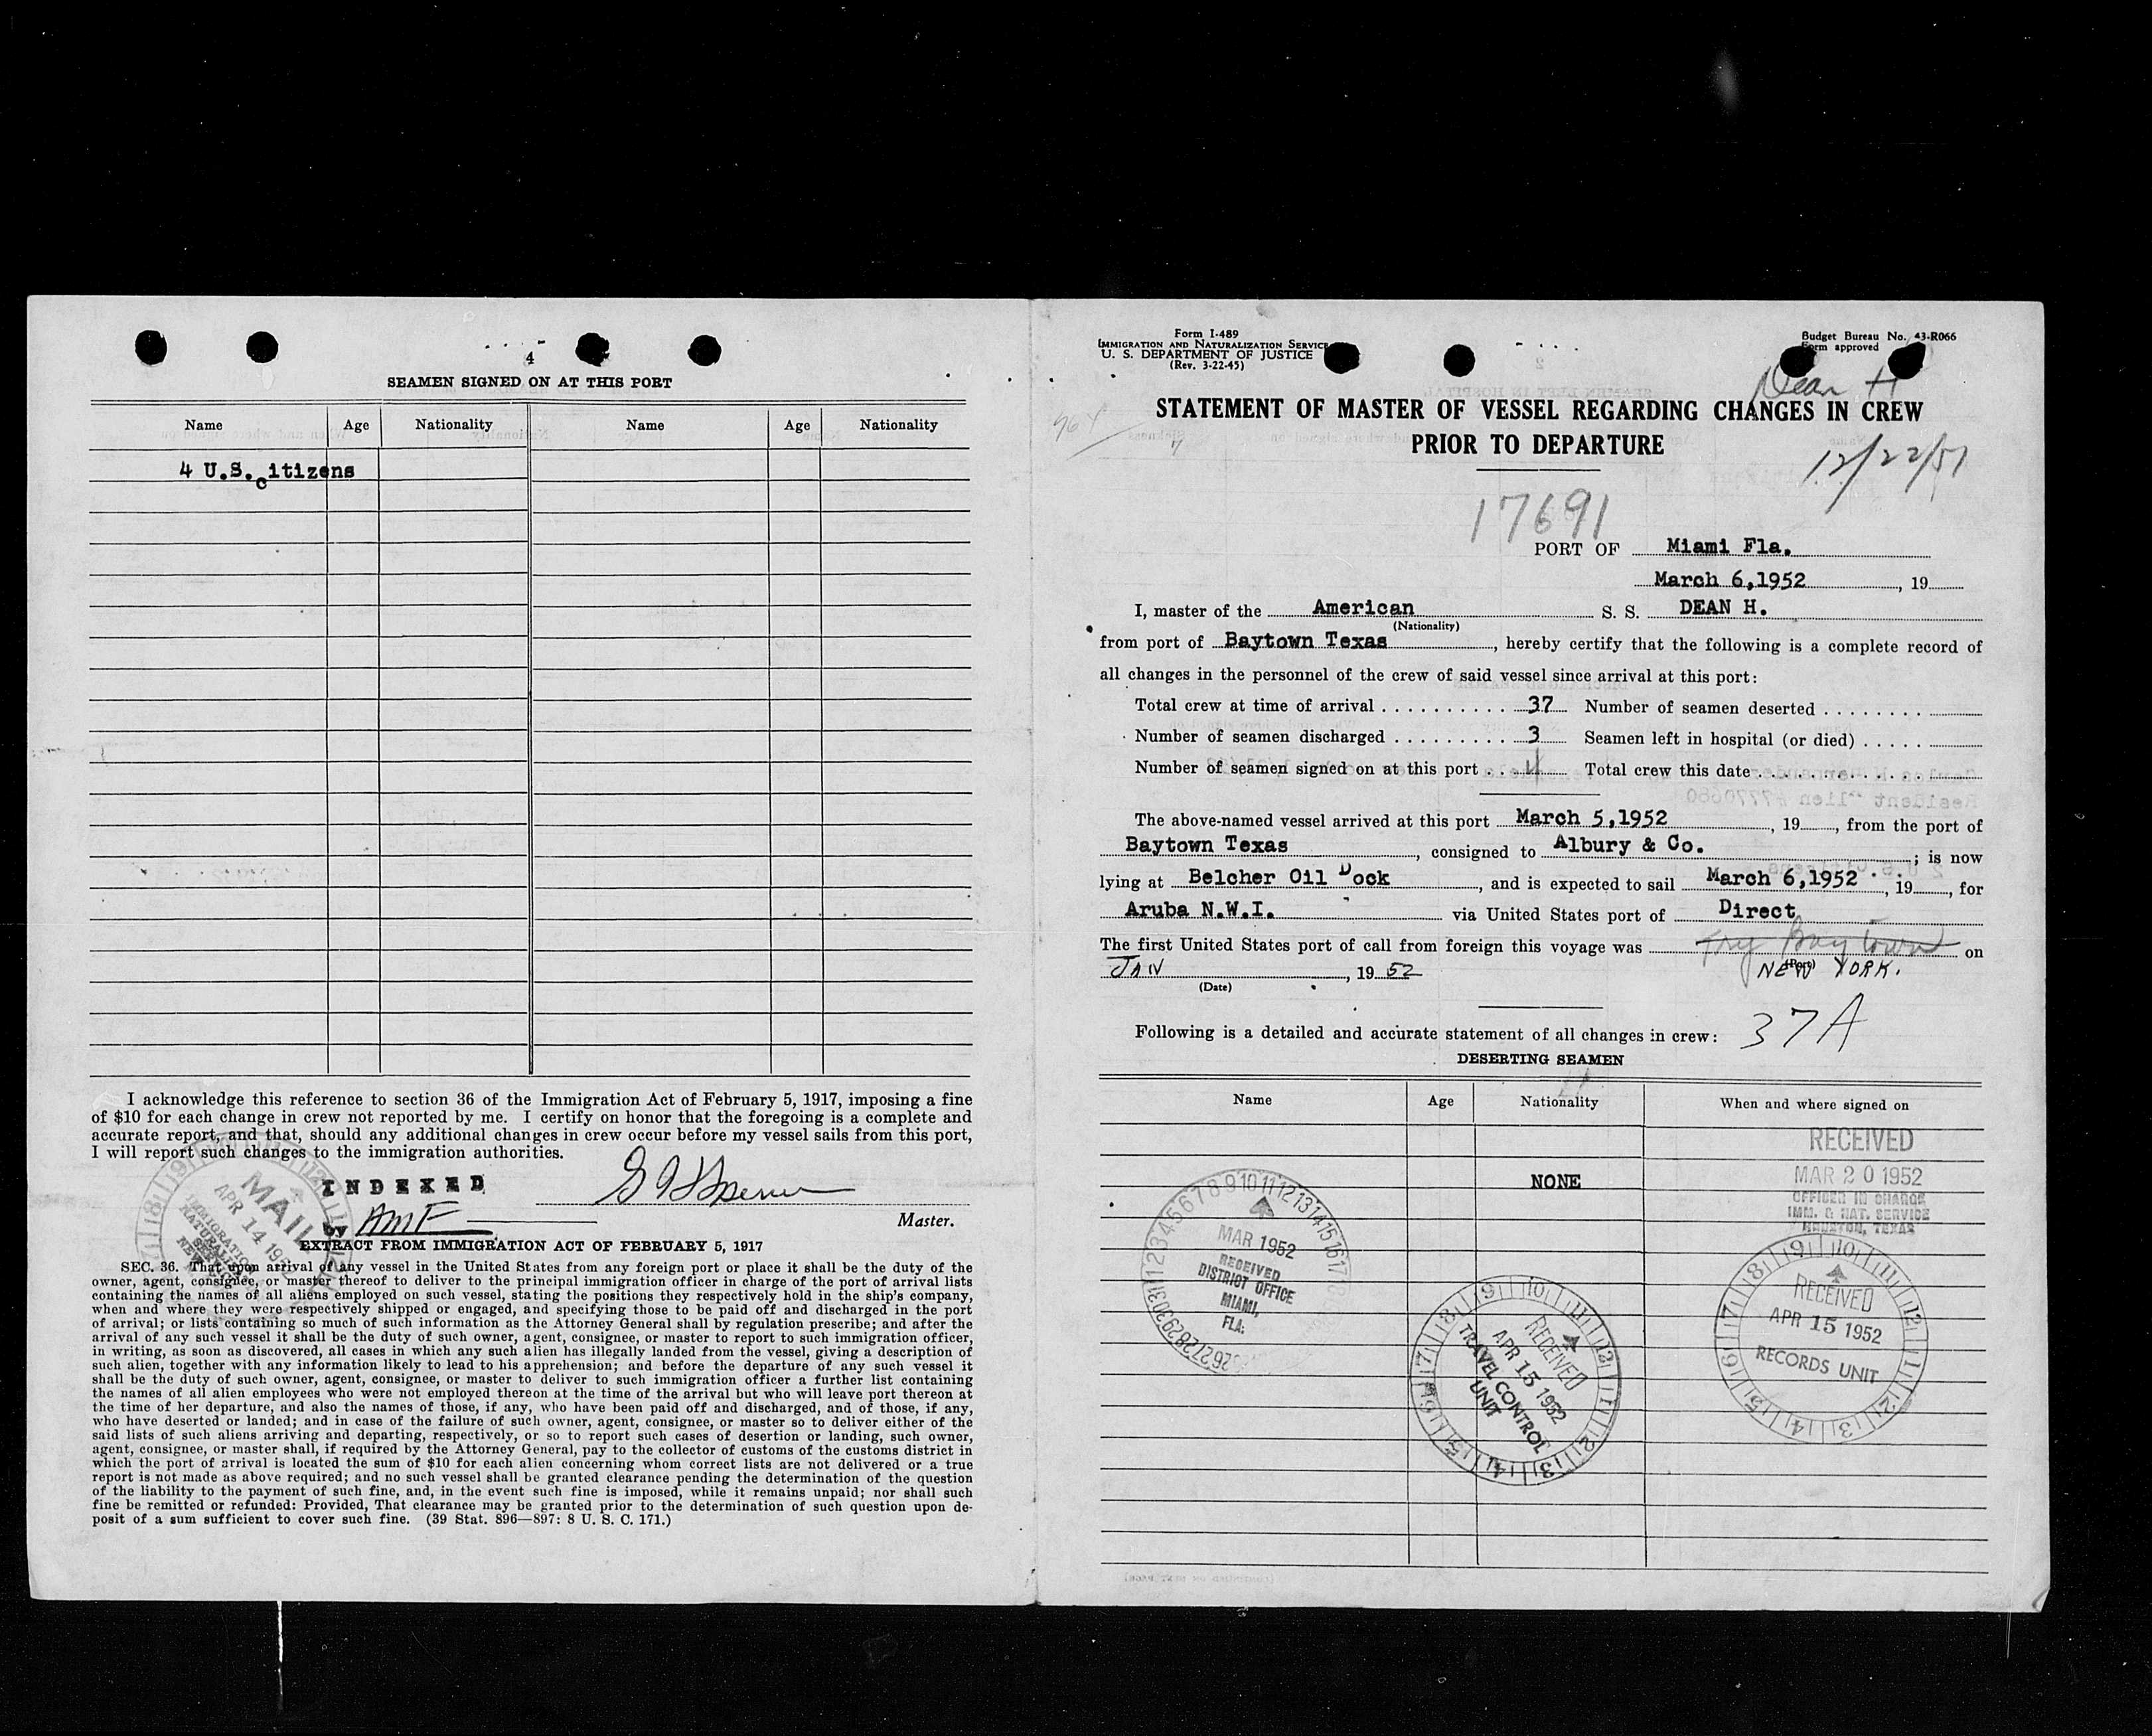 4
SEAMEN SIGNED ON AT THIS PORT
Name Age Nationality Name Age Nationality
4 U.S. citizens
I acknowledge this reference to section 36 of the Immigration Act of February 5, 1917, imposing a fine
of $10 for each change in crew not reported by me. I certify on honor that the foregoing is a complete and
accurate report, and that, should any additional changes in crew occur before my vessel sails from this port,
I will report such changes to the immigration authorities.
INDEXED
by AMF
Master.
MAIL
APR 14 1952
EXTRACT FROM IMMIGRATION ACT OF FEBRUARY 5, 1917
SEC. 36. That upon arrival of any vessel in the United States from any foreign port or place it shall be the duty of the
owner, agent, consignee, or master thereof to deliver to the principal immigration officer in charge of the port of arrival lists
containing the names of all aliens employed on such vessel, stating the positions they respectively hold in the ship's company,
when and where they were respectively shipped or engaged, and specifying those to be paid off and discharged in the port
of arrival; or lists containing so much of such information as the Attorney General shall by regulation prescribe; and after the
arrival of any such vessel it shall be the duty of such owner, agent, consignee, or master to report to such immigration officer,
in writing, as soon as discovered, all cases in which any such alien has illegally landed from the vessel, giving a description of
such alien, together with any information likely to lead to his apprehension; and before the departure of any such vessel it
shall be the duty of such owner, agent, consignee, or master to deliver to such immigration officer a further list containing
the names of all alien employees who were not employed thereon at the time of the arrival but who will leave port thereon at
the time of her departure, and also the names of those, if any, who have been paid off and discharged, and of those, if any,
who have deserted or landed; and in case of the failure of such owner, agent, consignee, or master so to deliver either of the
said lists of such aliens arriving and departing, respectively, or so to report such cases of desertion or landing, such owner,
agent, consignee, or master shall, if required by the Attorney General, pay to the collector of customs of the customs district in
which the port of arrival is located the sum of $10 for each alien concerning whom correct lists are not delivered or a true
report is not made as above required; and no such vessel shall be granted clearance pending the determination of the question
of the liability to the payment of such fine, and, in the event such fine is imposed, while it remains unpaid; nor shall such
fine be remitted or refunded: Provided, That clearance may be granted prior to the determination of such question upon de-
posit of a sum sufficient to cover such fine. (39 Stat. 896—897: 8 U. S. C. 171.)
Form I-489
IMMIGRATION AND NATURALIZATION SERVICE
U. S. DEPARTMENT OF JUSTICE
(Rev. 3-22-45)
Budget Bureau No. 43-R066
Form approved
Dean H
STATEMENT OF MASTER OF VESSEL REGARDING CHANGES IN CREW
PRIOR TO DEPARTURE
12/22/51
17691
PORT OF Miami Fla.
March 6,1952, 19
I, master of the American S. S. DEAN H.
(Nationality)
from port of Baytown Texas, hereby certify that the following is a complete record of
all changes in the personnel of the crew of said vessel since arrival at this port:
Total crew at time of arrival 37 Number of seamen deserted
Number of seamen discharged 3 Seamen left in hospital (or died)
Number of seamen signed on at this port 4 Total crew this date
The above-named vessel arrived at this port March 5,1952, 19, from the port of
Baytown Texas, consigned to Albury & Co.; is now
lying at Belcher Oil Dock, and is expected to sail March 6,1952, 19, for
Aruba N.W.I. via United States port of Direct
The first United States port of call from foreign this voyage was Baytown on
JAN, 19 52 (Port) NEW YORK.
(Date)
Following is a detailed and accurate statement of all changes in crew: 37A
DESERTING SEAMEN
Name Age Nationality When and where signed on
NONE
RECEIVED
MAR 20 1952
OFFICER IN CHARGE
IMM. & NAT. SERVICE
HOUSTON, TEXAS
MAR 1952
RECEIVED
DISTRICT OFFICE
MIAMI,
FLA.
RECEIVED
APR 15 1952
TRAVEL CONTROL
UNIT
RECEIVED
APR 15 1952
RECORDS UNIT